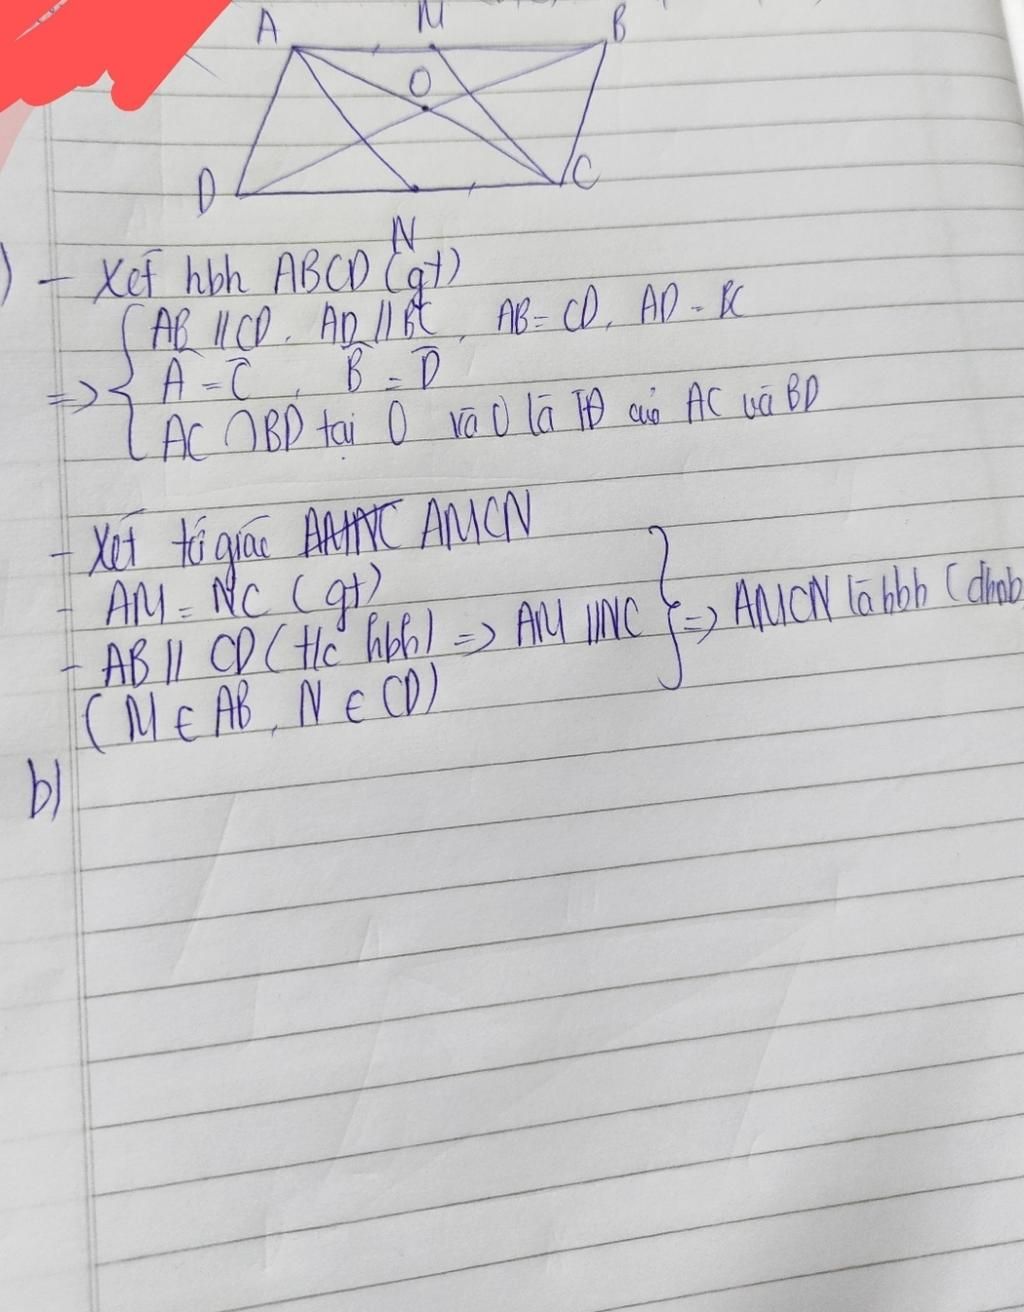 A M B
O
D C
N
) - Xét hbh ABCD (gt)
=> { AB // CD, AD // BC, AB = CD, AD = BC
A = C, B = D
AC ∩ BD tại O và O là TĐ của AC và BD
- Xét tứ giác AMNC AMCN
- AM = NC (gt)
- AB // CD (t/c hbh) => AM // NC } => AMCN là hbh (dhnb
(M ∈ AB, N ∈ CD)
b)